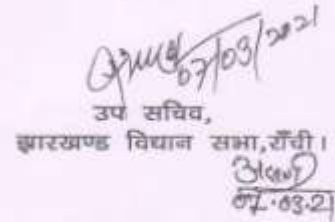 07/03/2021
उप सचिव,
झारखण्ड विधान सभा,राँची।
07.03.21